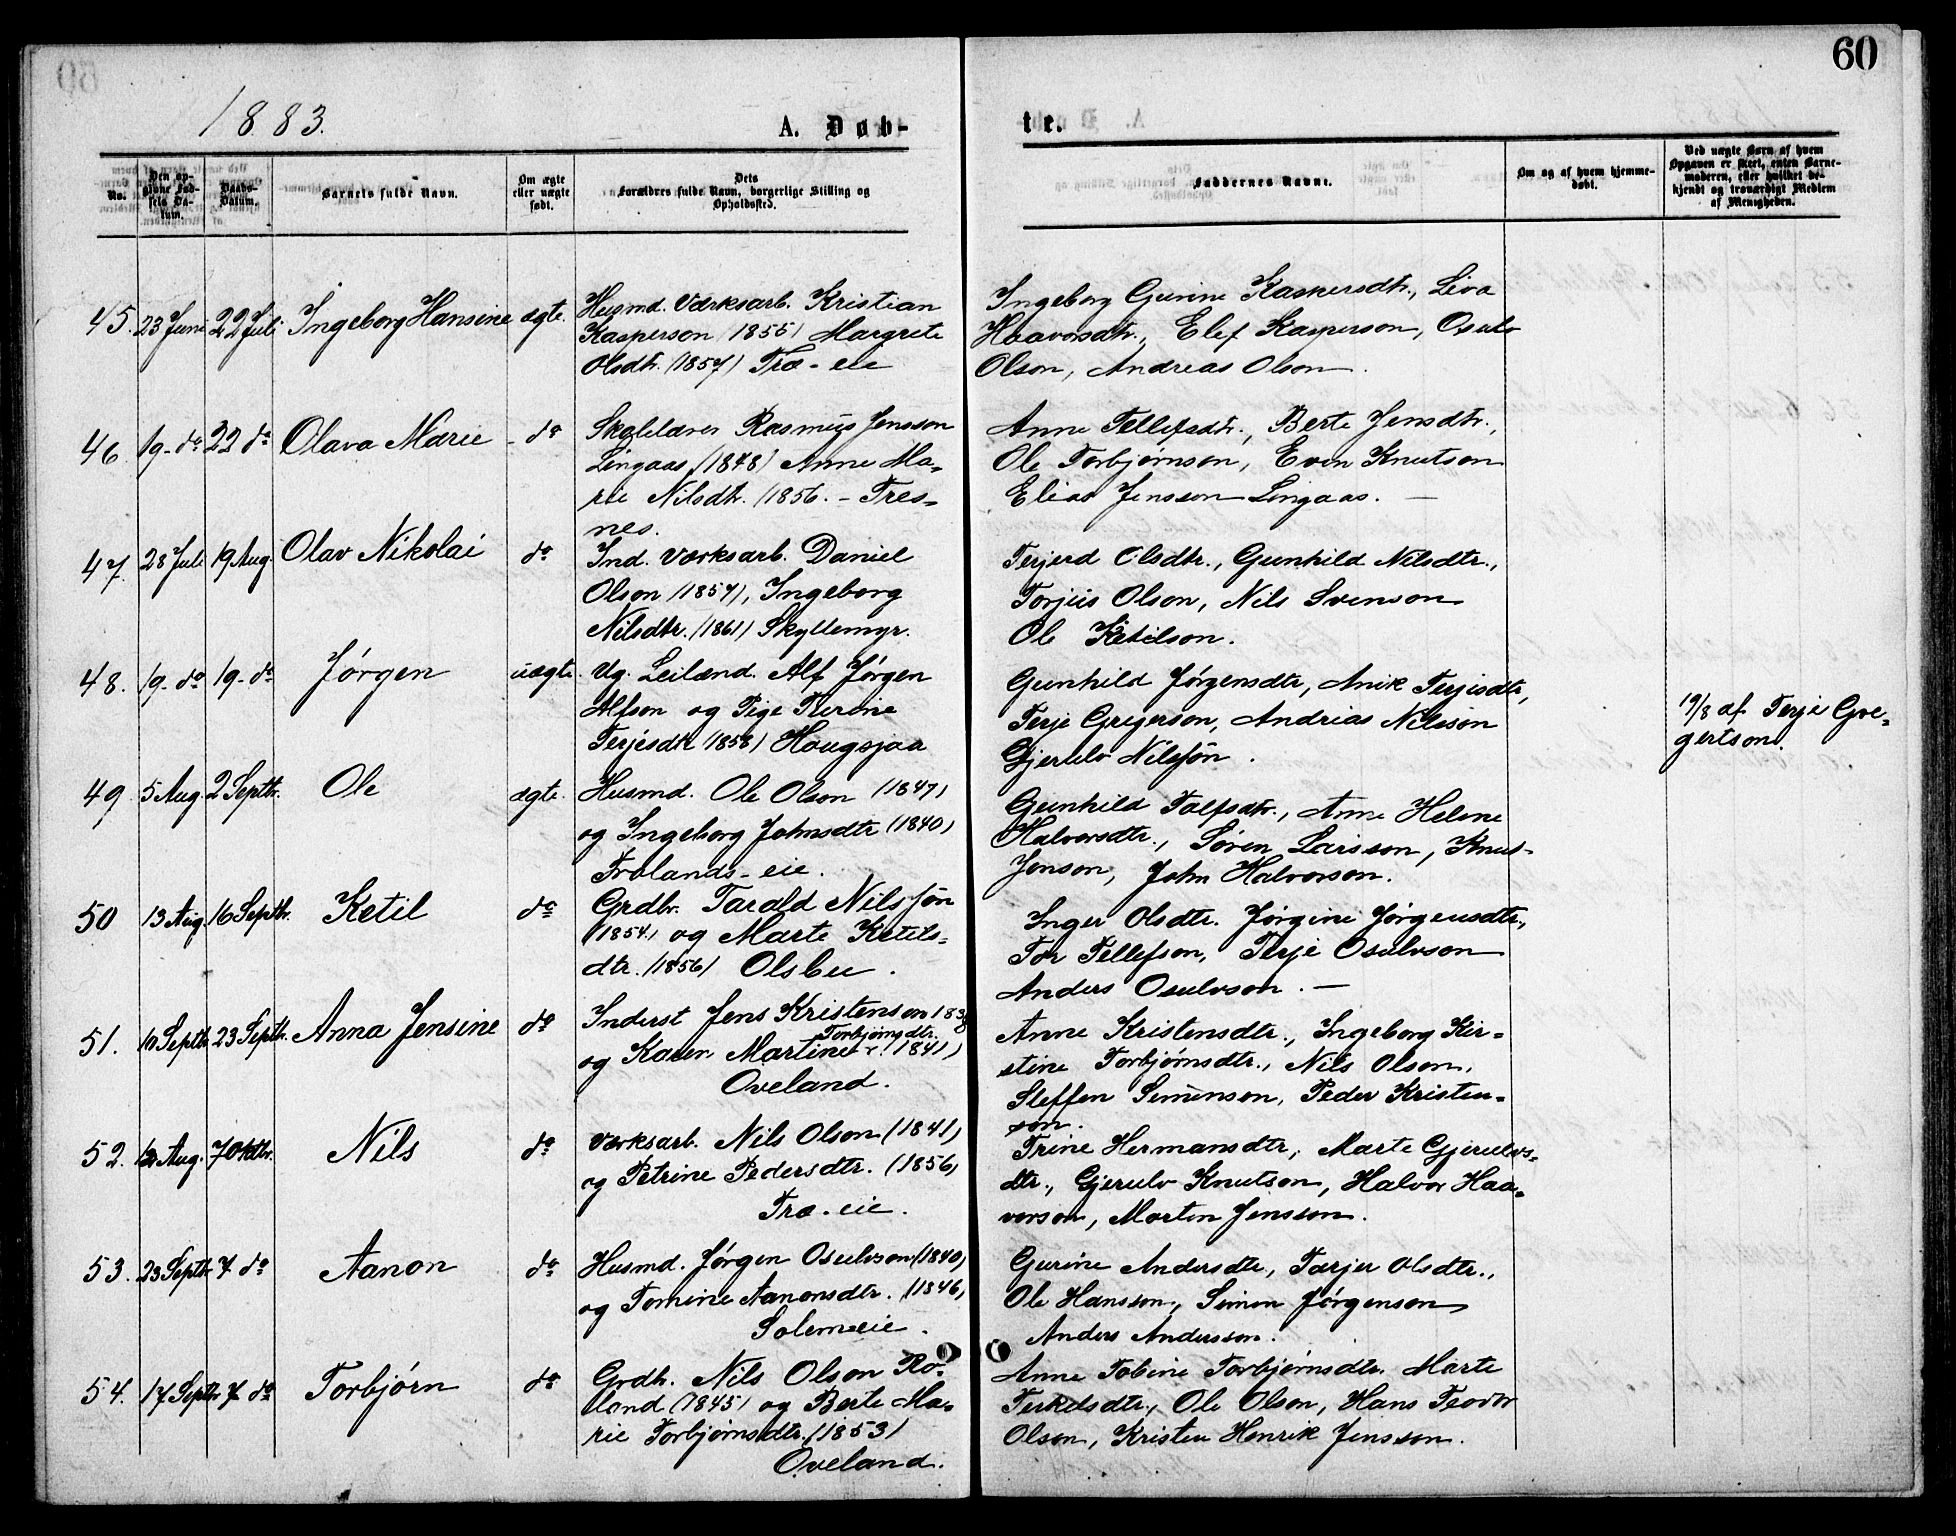 60
1883.
A. Døb-
te.
No.
Den opgivne Fødsels Datum.
Daabs-Datum.
Barnets fulde Navn.
Om ægte eller uægte født.
Dets Forældres fulde Navn, borgerlige Stilling og Opholdssted.
Faddernes Navne.
Om og af hvem hjemmedøbt.
Ved uægte Børn af hvem Opgaven er skeet, enten Barnemoderen, eller hvilket bekjendt og troværdigt Medlem af Menigheden.
45. 23 Juni 22 Juli Ingeborg Hansine ægte.
Husmd. Værksarb. Kristian
Kasperson (1855) Margrete
Olsdtr. (1857) Træ-eie
Ingeborg Gurine Kaspersdtr., Liva
Haavorsdtr., Elef Kasperson, Osulv
Olson, Andreas Olson.
46 19- do 22 do Olava Marie - do
Skolelærer Rasmus Jensson
Lingaas (1848) Anne Ma-
rie Nilsdtr. (1856. - Tres-
nes.
Anne Tellefsdtr., Berte Jensdtr.,
Ole Torbjørnson, Even Knutson
Elias Jensson Lingaas. —
47. 28 Juli 19 Aug. Olav Nikolai do
Ind. Værksarb. Daniel
Olson (1857), Ingeborg
Nilsdtr. (1861) Skyttemyr.
Terjerd Olsdtr., Gunhild Nilsdtr.,
Torjus Olson, Nils Svenson
Ole Ketilson.
48. 19- do 19- do Jørgen uægte.
Ug. Leilænd. Alf Jørgen
Alfson og Pige Turine
Terjesdtr (1858) Hougsjaa
Gunhild Jørgensdtr, Anik Terjesdtr,
Terje Gregerson, Andrias Nilsson
Gjerulv Nilsjøn.
19/8 af Terje Gre-
gertson.
49 5 Aug. 2 Septbr. Ole ægte.
Husmd. Ole Olson (1847)
og Ingeborg Johnsdtr (1840)
Frolands-eie.
Gunhild Tolfsdtr., Anne Helene
Halvorsdtr., Søren Larsson, Knut
Jonson, John Halvorson.
50 13 Aug. 16 Septbr. Ketil do
Grdbr. Tarald Nilsjøn
(1854) og Marte Ketils-
dtr. (1856) Olsbu.
Inger Olsdtr. Jørgine Jørgensdtr.,
Tor Tellefson, Terje Osulvson
Anders Osulvson. —
51. 10 Septbr 23 Septbr. Anna Jensine do
Inderst Jens Kristenson 1838
Torbjørnsdtr.
og Karen Martine (1841)
Oveland.
Anne Kristensdtr., Ingeborg Kir-
stine Torbjørnsdtr., Nils Olson,
Steffen Simonson, Peder Kristen-
son.
52. Aug. 7 Oktbr. Nils do
Værksarb. Nils Olson (1841)
og Petrine Pedersdtr. (1856)
Træ-eie.
Trine Hermansdtr, Marte Gjerulvs-
dtr., Gjerulv Knutson, Halvor Haa-
vorson, Morten Jensson.
53. 23 Septbr 7 do Aanon do
Husmd. Jørgen Osulvson (1840)
og Tomine Aanonsdtr. (1846)
Solemseie.
Gurine Andersdtr, Tarjer Olsdtr.,
Ole Hansson, Simon Jørgenson
Anders Andersson.
54. 17 Septbr 7 do Torbjørn do
Grdbr. Nils Olson Ro-
land (1845) og Berte Ma-
rie Torbjørnsdtr. (1853)
Oveland.
Anne Tobine Torbjørnsdtr. Marte
Terkelsdtr, Ole Olson, Hans Teodor
Olson, Kristen Henrik Jensson.